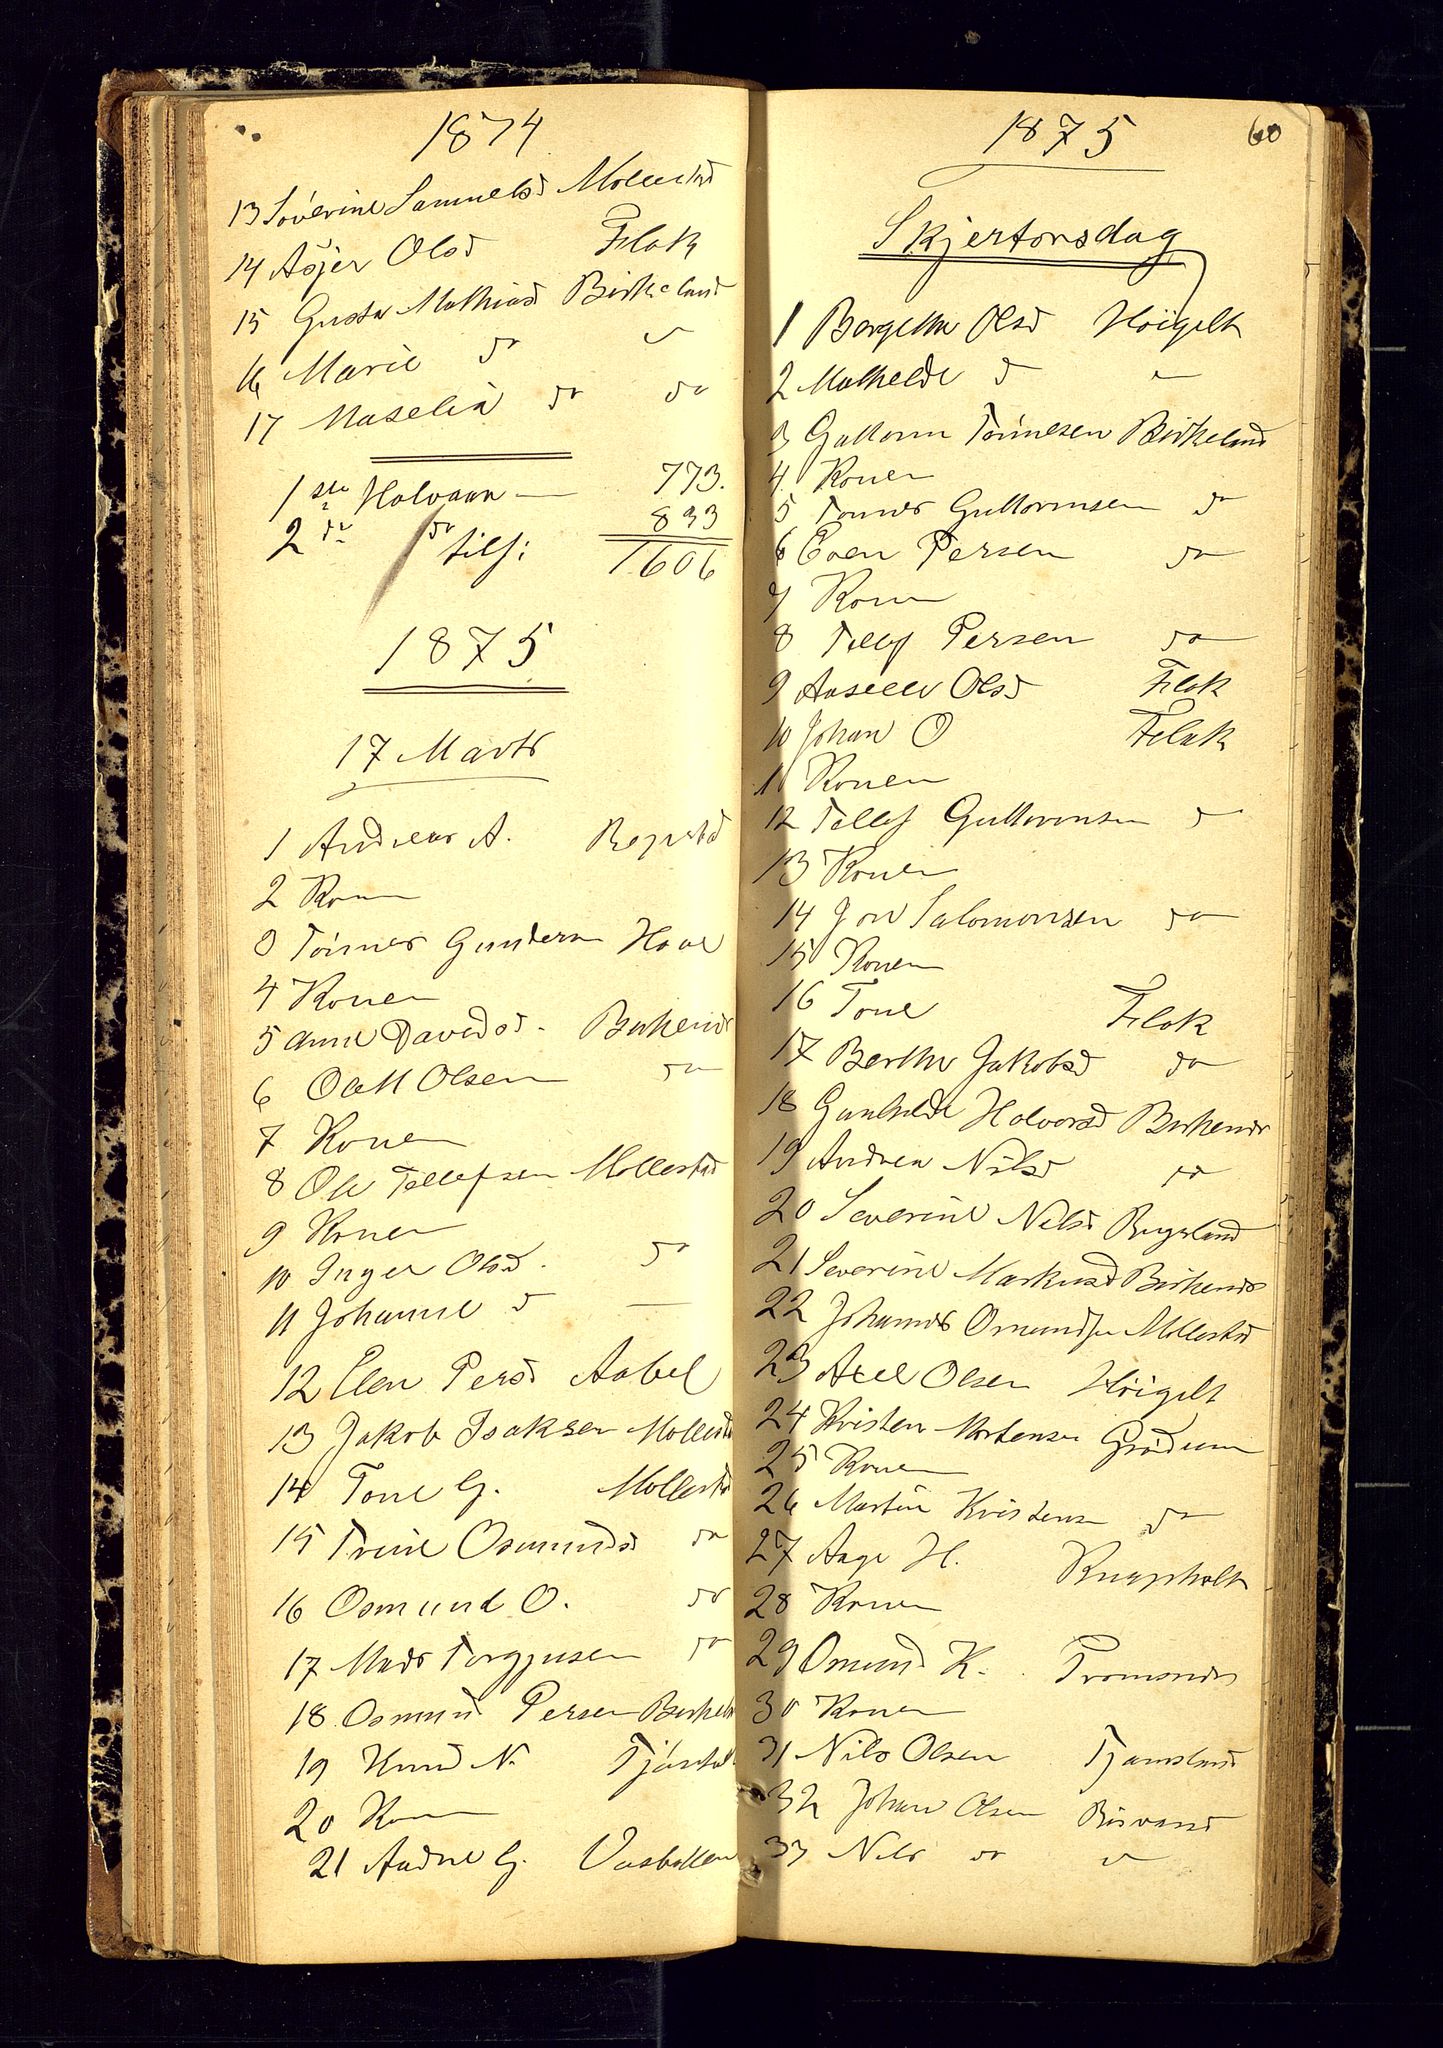 1874
13 Söverine Samuelsd Mollestad
14 Asjer Olsd Flak
15 Gusta Mathiasd Birkeland
16 Marie do "
17 Maselia do do
1ste Halvaar — 773.
2 do do 833
tils: 1606
1875
17 Marts
1 Andreas A. Bogestad
2 Konen
3 Tönnes Gunders Haae
4 Konen
5 Anne Davidsd. Birkenes
6 Olall Olsen do
7 Konen
8 Ole Tellefsen Mollestad
9 Konen
10 Inger Olsd. do
11 Johanne d —
12 Elen Persd Aabel
13 Jakob Isaksen Mollestad
14 Tone G. Mollestad
15 Trine Osmundsd do
16 Osmund O. do
17 Mads Torgjusen do
18 Osmund Persen Birkeland
19 Knud N.
20 Konen
21 Aadne G. Vasbakken
1875
60
Skjertorsdag
1 Bergethe Olsd Höigelt
2 Mathilde d "
3 Guttorm Tönnesen Birkeland
4 Konen
5 Tönnes Guttormsen do
6 Even Persen do
7 Konen
8 Tellef Persen do
9 Aaselle Olsd Flak
10 Johan O Flak
11 Konen
12 Tellef Guttormsen d
13 Konen
14 Jon Salomonsen do
15 Konen
16 Tone Flak
17 Berthe Jakobsd do
18 Gunhilde Halvorsd Birkenes
19 Andrea Nilsd do
20 Severine Nilsd Bugeland
21 Severine Markusd Birkenes
22 Johannes Omundsen Mollestad
23 Axel Olsen Höigelt
24 Kristen Mortensen Grödum
25 Konen
26 Martin Kristensen do
27 Aage H. Rugsholt
28 Konen
29 Omund K. Tromsnes
30 Konen
31 Nils Olsen Tjamsland
32 Johan Olsen Bösvand
33 Nils do "